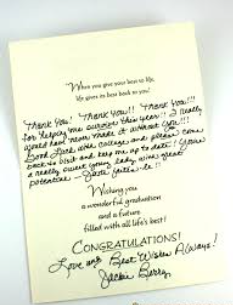 When you give your best to life,
life gives its best back to you!
Thank You! Thank You!! Thank You!!!
for helping me survive this year!! I really
would have never made it without you!!!
Good Luck with college and please come
back to visit and keep me up to date! You're
a really sweet young lady
potential
Wishing you
a wonderful graduation
and a future
filled with all life's best!
CONGRATULATIONS!
Love and Best Wishes Always!
Jackie Berry